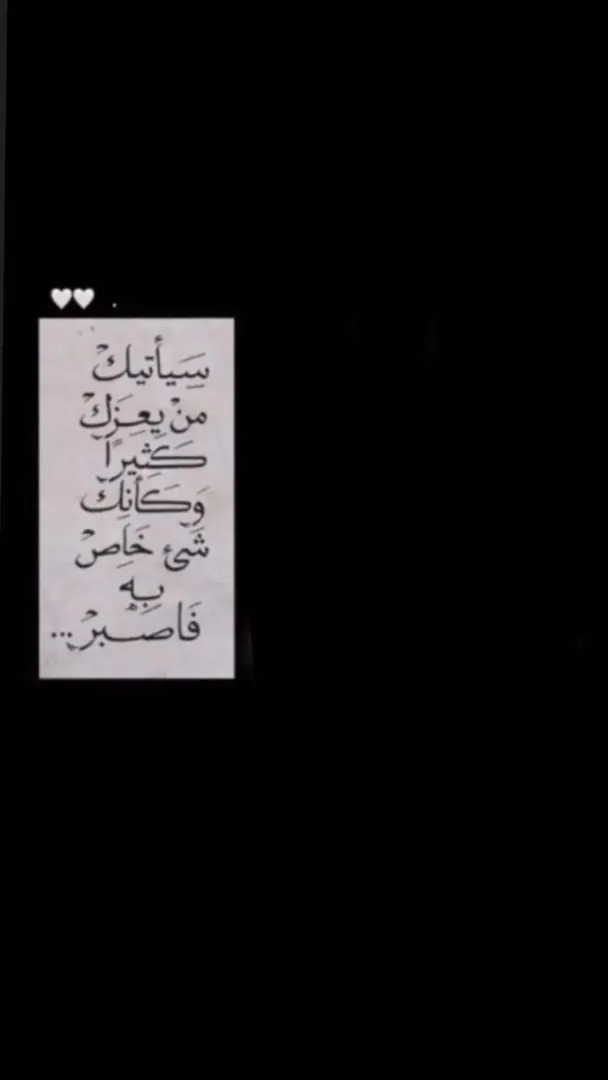 🤍🤍 .
سَيأتيكْ
منْ يعزكْ
كَثيرًا
وَكَأنِكْ
شَئ خَاصْ
بِهِ
فَاصبرْ...